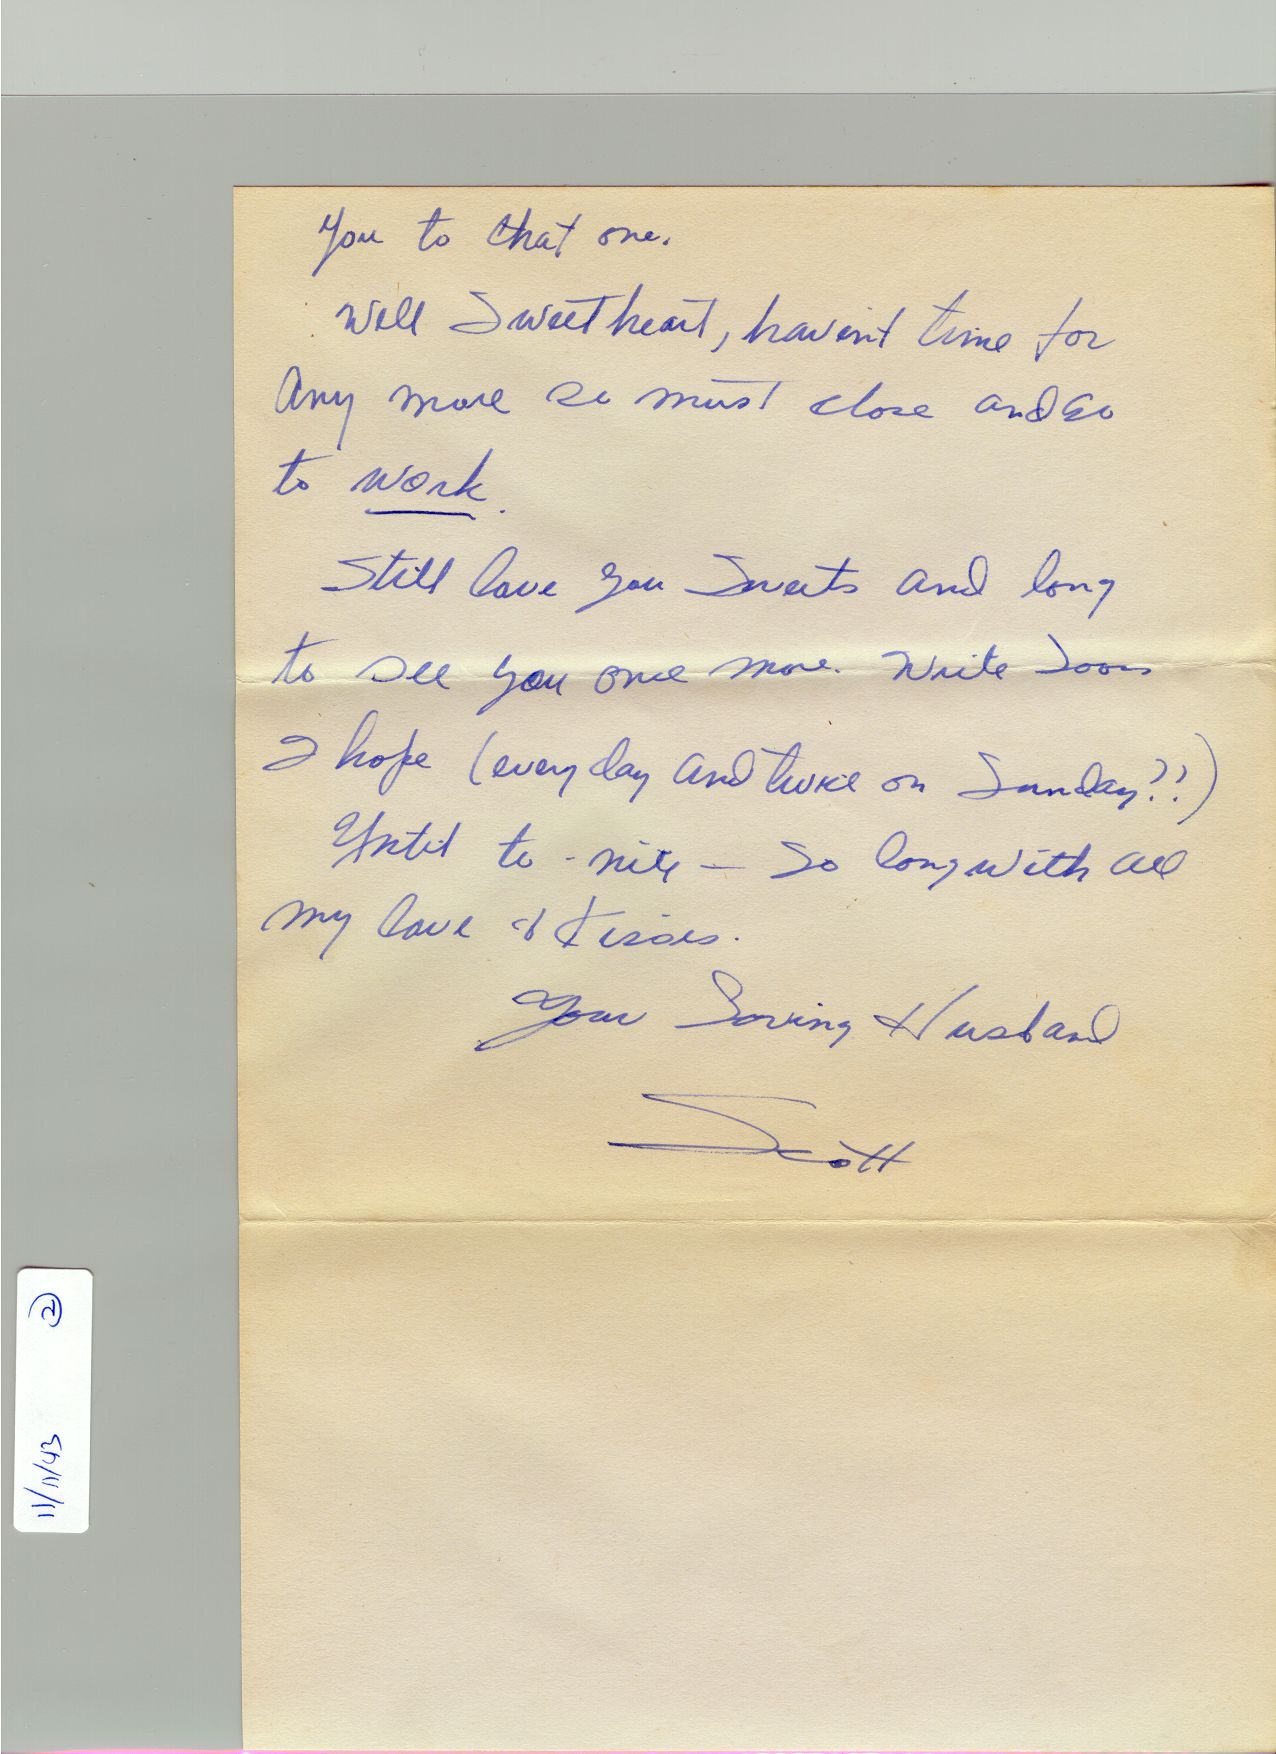 You to that one.
Well Sweetheart, haven't time for
Any more so must close and go
to work.
Still love you Sweets and long
to see you once more. Write soon
I hope (everyday and twice on Sunday??)
Until to-nite — So long with all
my love & kisses.
Your Loving Husband
Scott
11/11/43 2